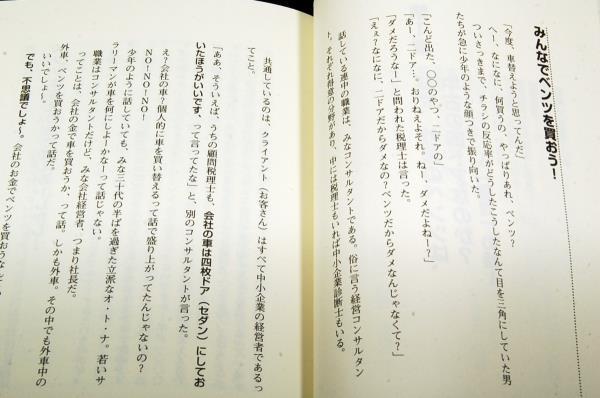 みんなでベンツを買おう！
「今度、車替えようと思ってんだ」
へー、なになに、何買うの、やっぱりあれ、ベンツ？
ついさっきまで、チラシの反応率がどうしたこうしたなんて目を三角にしていた男
たちが急に少年のような顔つきで振り向いた。
「こんど出た、〇〇のやつ、二ドアの」
「あー、二ドア…。おりねえよそれ。ねー、ダメだよねー？」
「ダメだろうなー」と問われた税理士は言った。
「えぇ？なになに、二ドアだからダメなの？ベンツだからダメなんじゃなくて？」
話している連中の職業は、みなコンサルタントである。俗に言う経営コンサルタン
ト。それぞれ得意の分野があり、中には税理士もいれば中小企業診断士もいる。
共通しているのは、クライアント（お客さん）はすべて中小企業の経営者であるっ
てこと。
「ああ、そういえば、うちの顧問税理士も、会社の車は四枚ドア（セダン）にしてお
いたほうがいいです、って言ってたな」と、別のコンサルタントが言った。
え？会社の車？個人的に車を買い替えるって話で盛り上がってたんじゃないの？
NO！NO！NO！
少年のように話していても、みな三十代の半ばを過ぎた立派なオ・ト・ナ。若いサ
ラリーマンが車を何にしよーかなーって話じゃない。
職業はコンサルタントだけど、みな会社経営者、つまり社長だ。
ってことは、会社の金で車を買おうか、って話。しかも外車。その中でも外車中の
外車、ベンツを買おうかって話だ。
いいでしょ〜。
でも、不思議でしょ〜。会社のお金でベンツを買おうなん